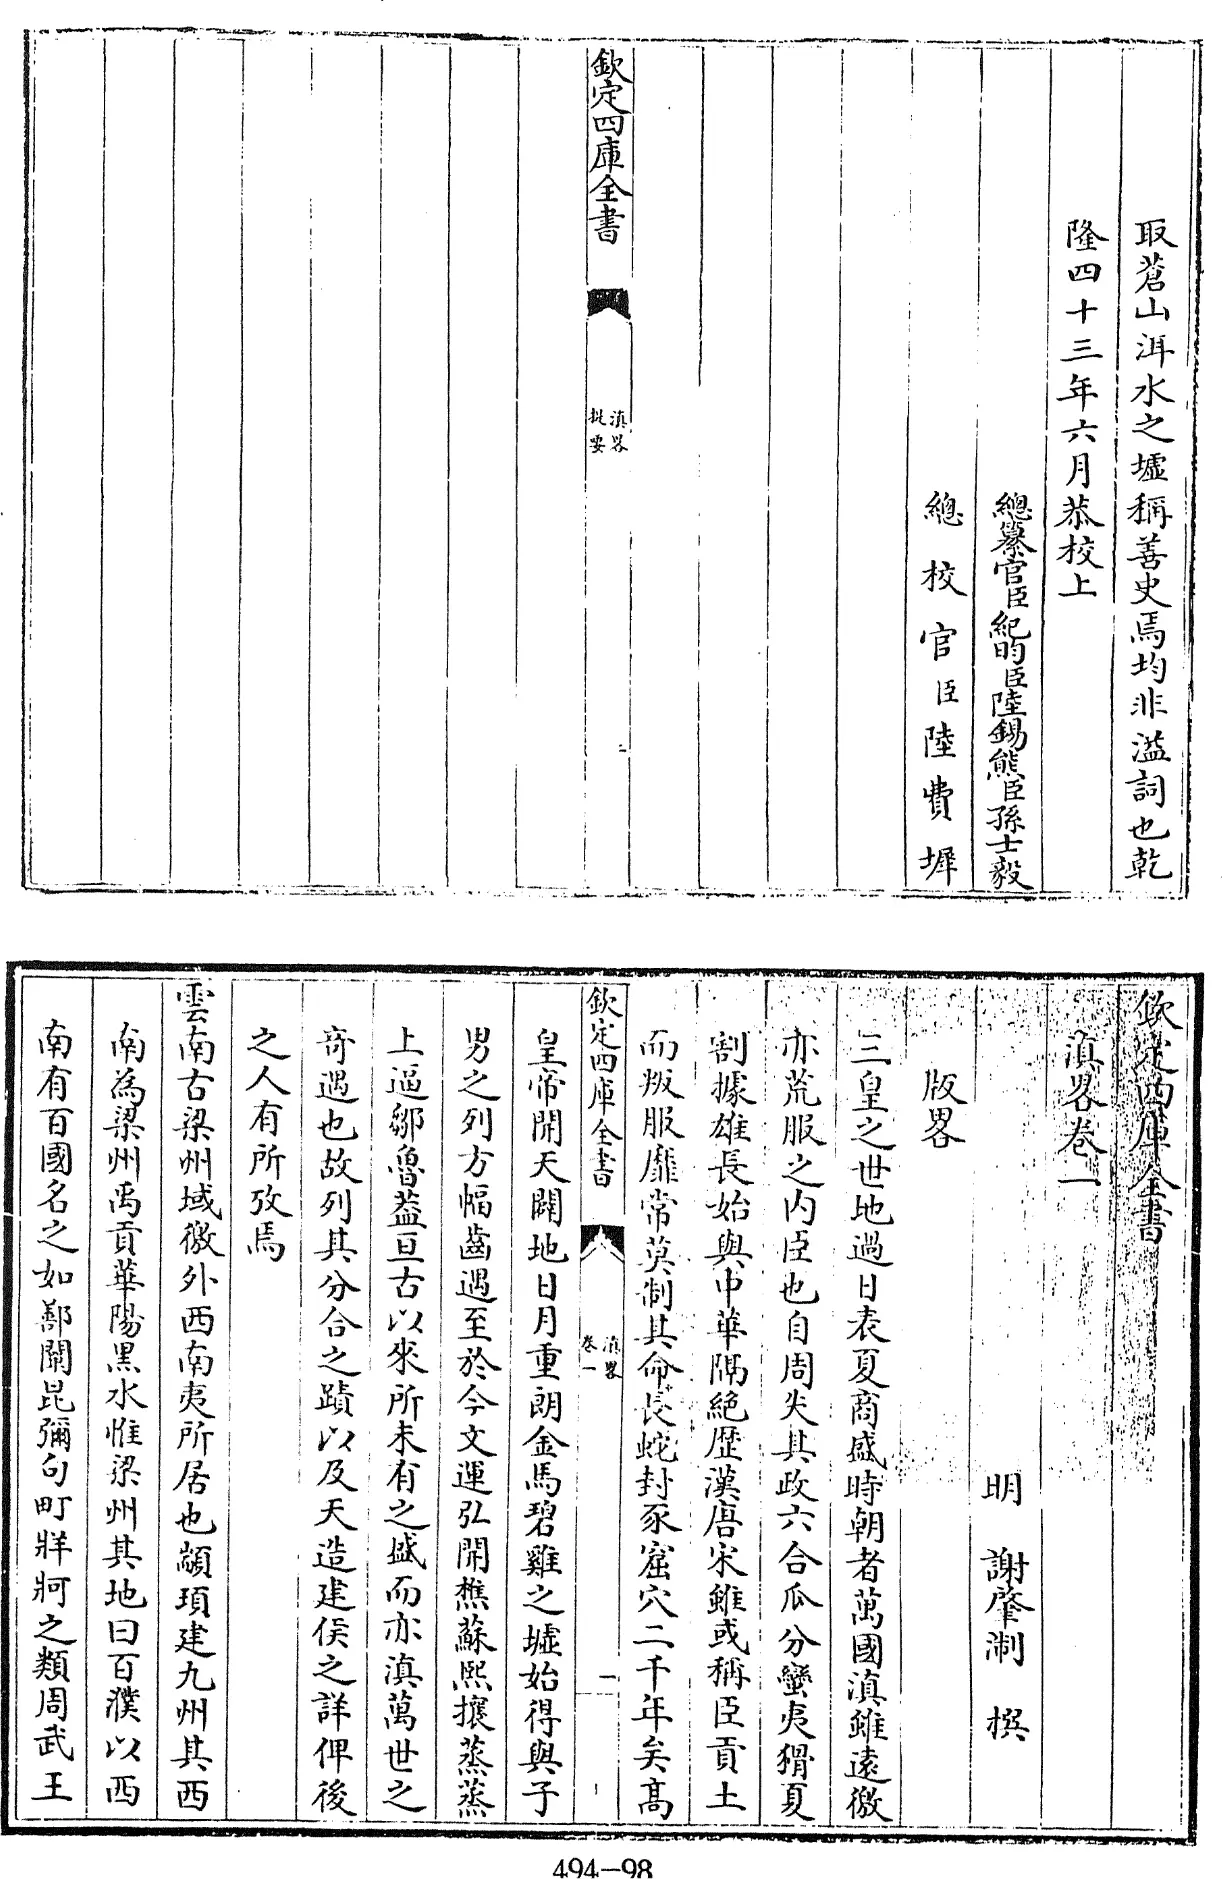 取蒼山洱水之墟稱善史焉均非溢詞也乾
隆四十三年六月恭校上
總纂官臣紀昀臣陸錫熊臣孫士毅
總校官臣陸費墀
欽定四庫全書
滇畧
提要
二
欽定四庫全書
滇畧卷一
明 謝肇淛 撰
版畧
三皇之世地過日表夏商盛時朝者萬國滇雖遠徼
亦荒服之内臣也自周失其政六合瓜分蠻夷猾夏
割據雄長始與中華隔絶歴漢唐宋雖或稱臣貢土
而叛服靡常莫制其命長蛇封豕窟穴二千年矣髙
欽定四庫全書
滇畧
卷一
一
皇帝開天闢地日月重朗金馬碧雞之墟始得與子
男之列方幅齒遇至於今文運弘開樵蘇熙攘蒸蒸
上逼鄒魯葢亘古以來所未有之盛而亦滇萬世之
竒遇也故列其分合之蹟以及天造建侯之詳俾後
之人有所攷焉
雲南古梁州域徼外西南夷所居也顓頊建九州其西
南為梁州禹貢華陽黒水惟梁州其地曰百濮以西
南有百國名之如鄯闡昆彌句町牂牁之類周武王
494-98